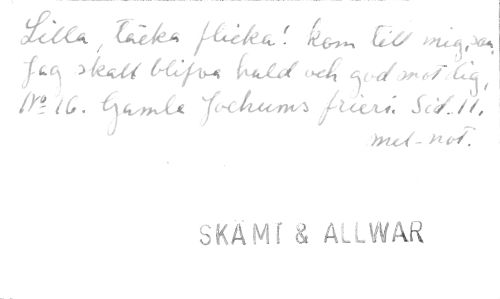 Lilla, täcka flicka! kom till mig, så
Jag skall blifva huld och god mot dig,
No 16. Gamle Jochums frieri. Sid. 11.
mel-not.
SKÄMT & ALLWAR